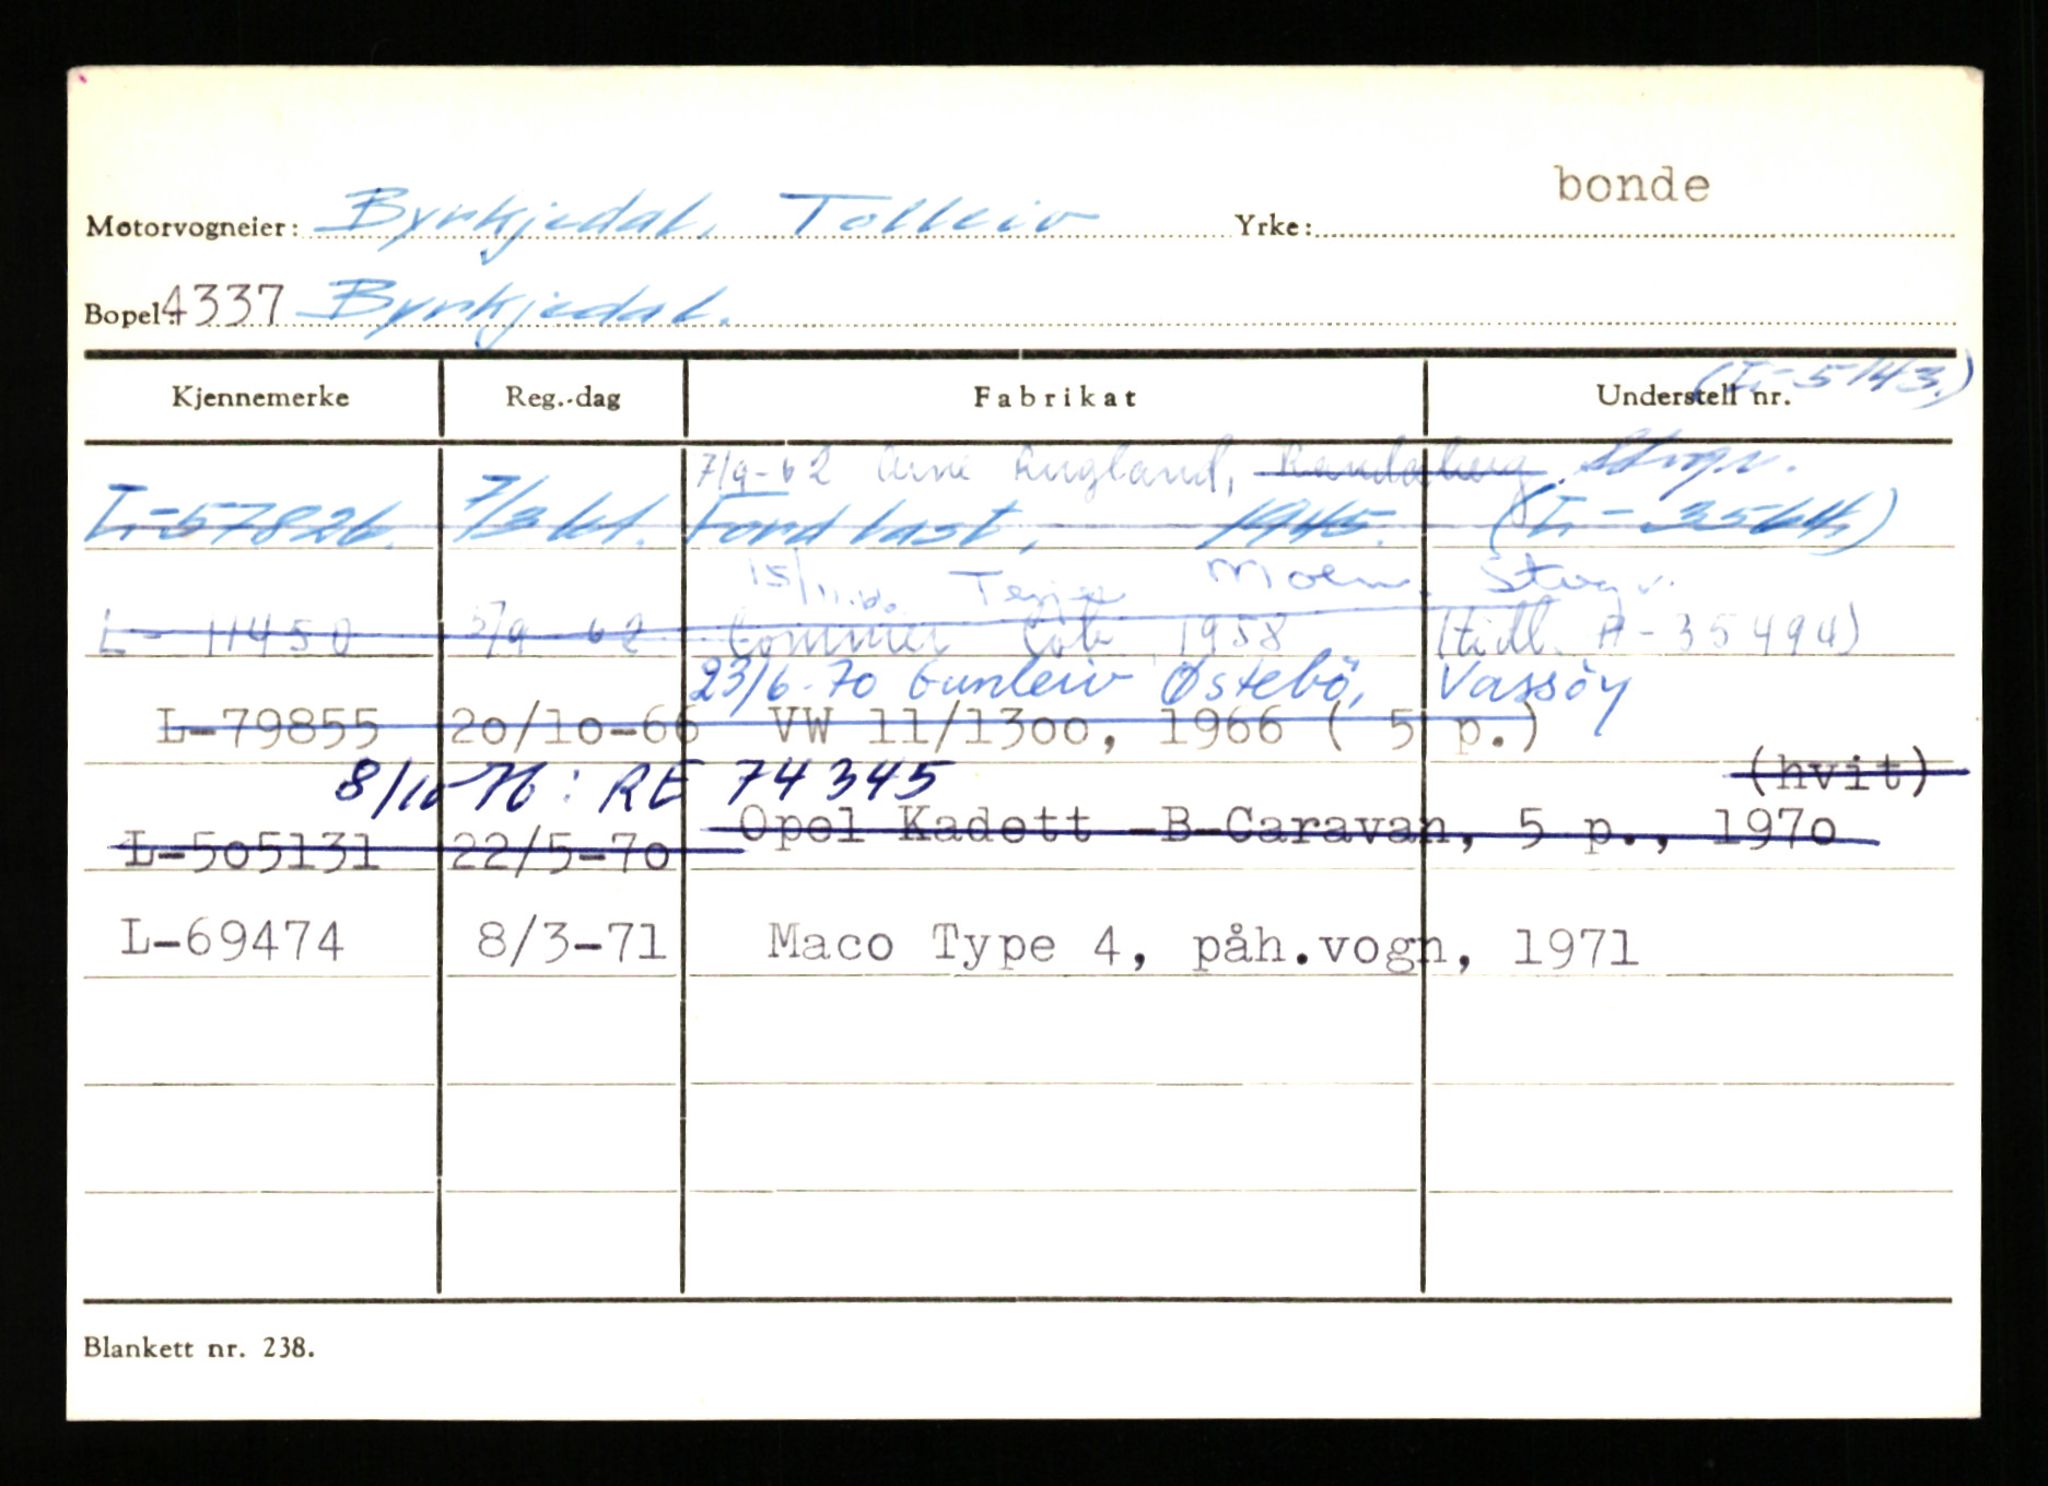 bonde
Motorvogneier: Byrkjedal, Tolleiv Yrke:
Bopel: 4337 Byrkjedal.
(L-5143.)
Kjennemerke Reg.-dag Fabrikat Understell nr.
7/9-62 Arne Lugland, Randaberg Stvgr.
L-57826. 7/3 61. Ford last, 1945. (L-3564)
15/11. Terje Moen, Stvgr.
L-11450 5/9 62 Commer Cob 1958 (tidl. A-35494)
23/6-70 Gunleiv Østebö, Vassöy
L-79855 20/10-66 VW 11/1300, 1966 ( 5 p.)
(hvit)
8/10-76: RE 74345
L-505131 22/5-70 Opel Kadett -B-Caravan, 5 p., 1970
L-69474 8/3-71 Maco Type 4, påh.vogn, 1971
Blankett nr. 238.